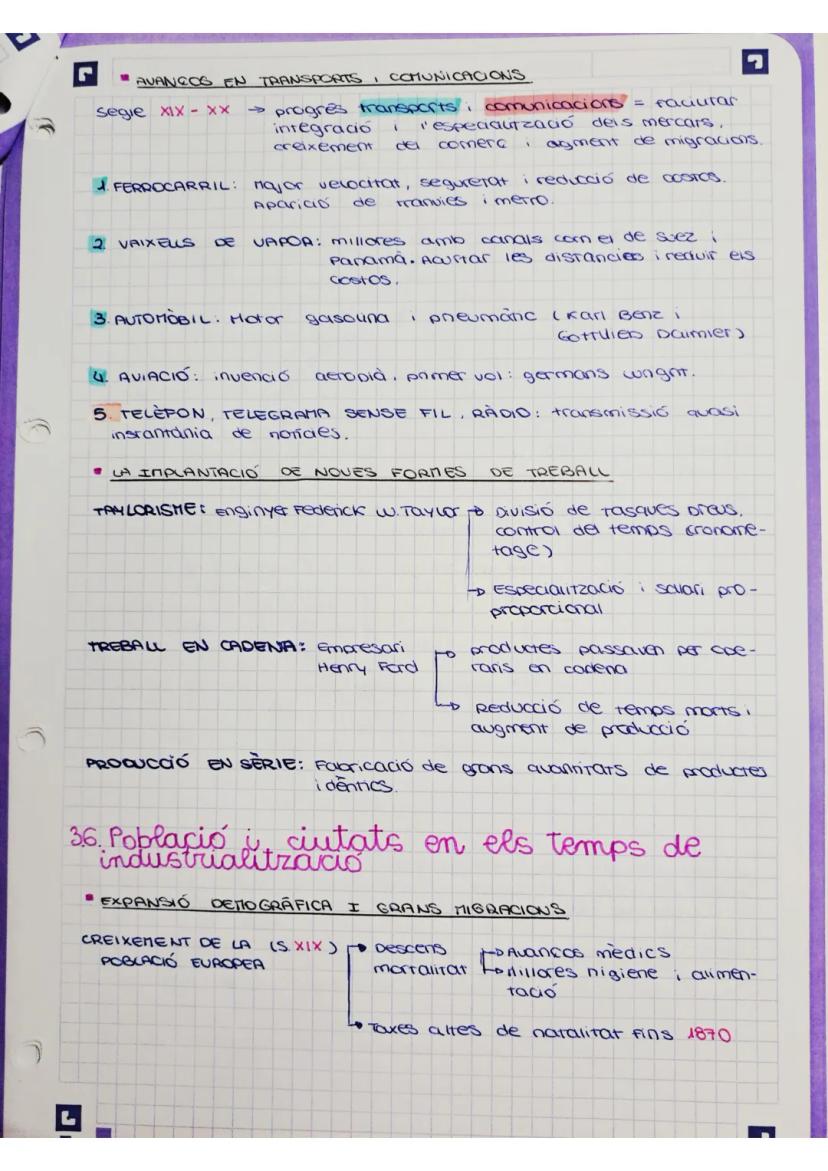 ▪ AVANÇOS EN TRANSPORTS i COMUNICACIONS
segle XIX - XX → progrés transports i comunicacions = facilitar
integració i l'especialització dels mercats,
creixement del comerç i agment de migracions.
1. FERROCARRIL: Major velocitat, seguretat i reducció de costos.
Aparició de tramvies i metro.
2. VAIXELLS DE VAPOR: millores amb canals com el de Suez i
Panamà. Acurtar les distàncies i reduir els
costos.
3. AUTOMÒBIL: Motor gasolina i pneumàtic (Karl Benz i
Gottlieb Daimler)
4. AVIACIÓ: invenció aeroplà, primer vol: germans Wright.
5. TELÈFON, TELEGRAMA SENSE FIL, RÀDIO: transmissió quasi
instantània de notícies.
▪ LA IMPLANTACIÓ DE NOVES FORMES DE TREBALL
TAYLORISME: enginyer Federick W. Taylor → Divisió de tasques breus,
control del temps (cronome-
tatge)
→ Especialització i salari pro-
proporcional
TREBALL EN CADENA: Empresari → productes passaven per ope-
Henry Ford raris en cadena
→ Reducció de temps morts i
augment de producció
PRODUCCIÓ EN SÈRIE: Fabricació de grans quantitats de productes
idèntics.
3.6. Població i ciutats en els temps de
industrialització
▪ EXPANSIÓ DEMOGRÀFICA I GRANS MIGRACIONS
CREIXEMENT DE LA (S. XIX) → Descens → Avancos mèdics
POBLACIÓ EUROPEA mortalitat → Millores higiene i alimen-
tació
→ Taxes altes de natalitat fins 1870